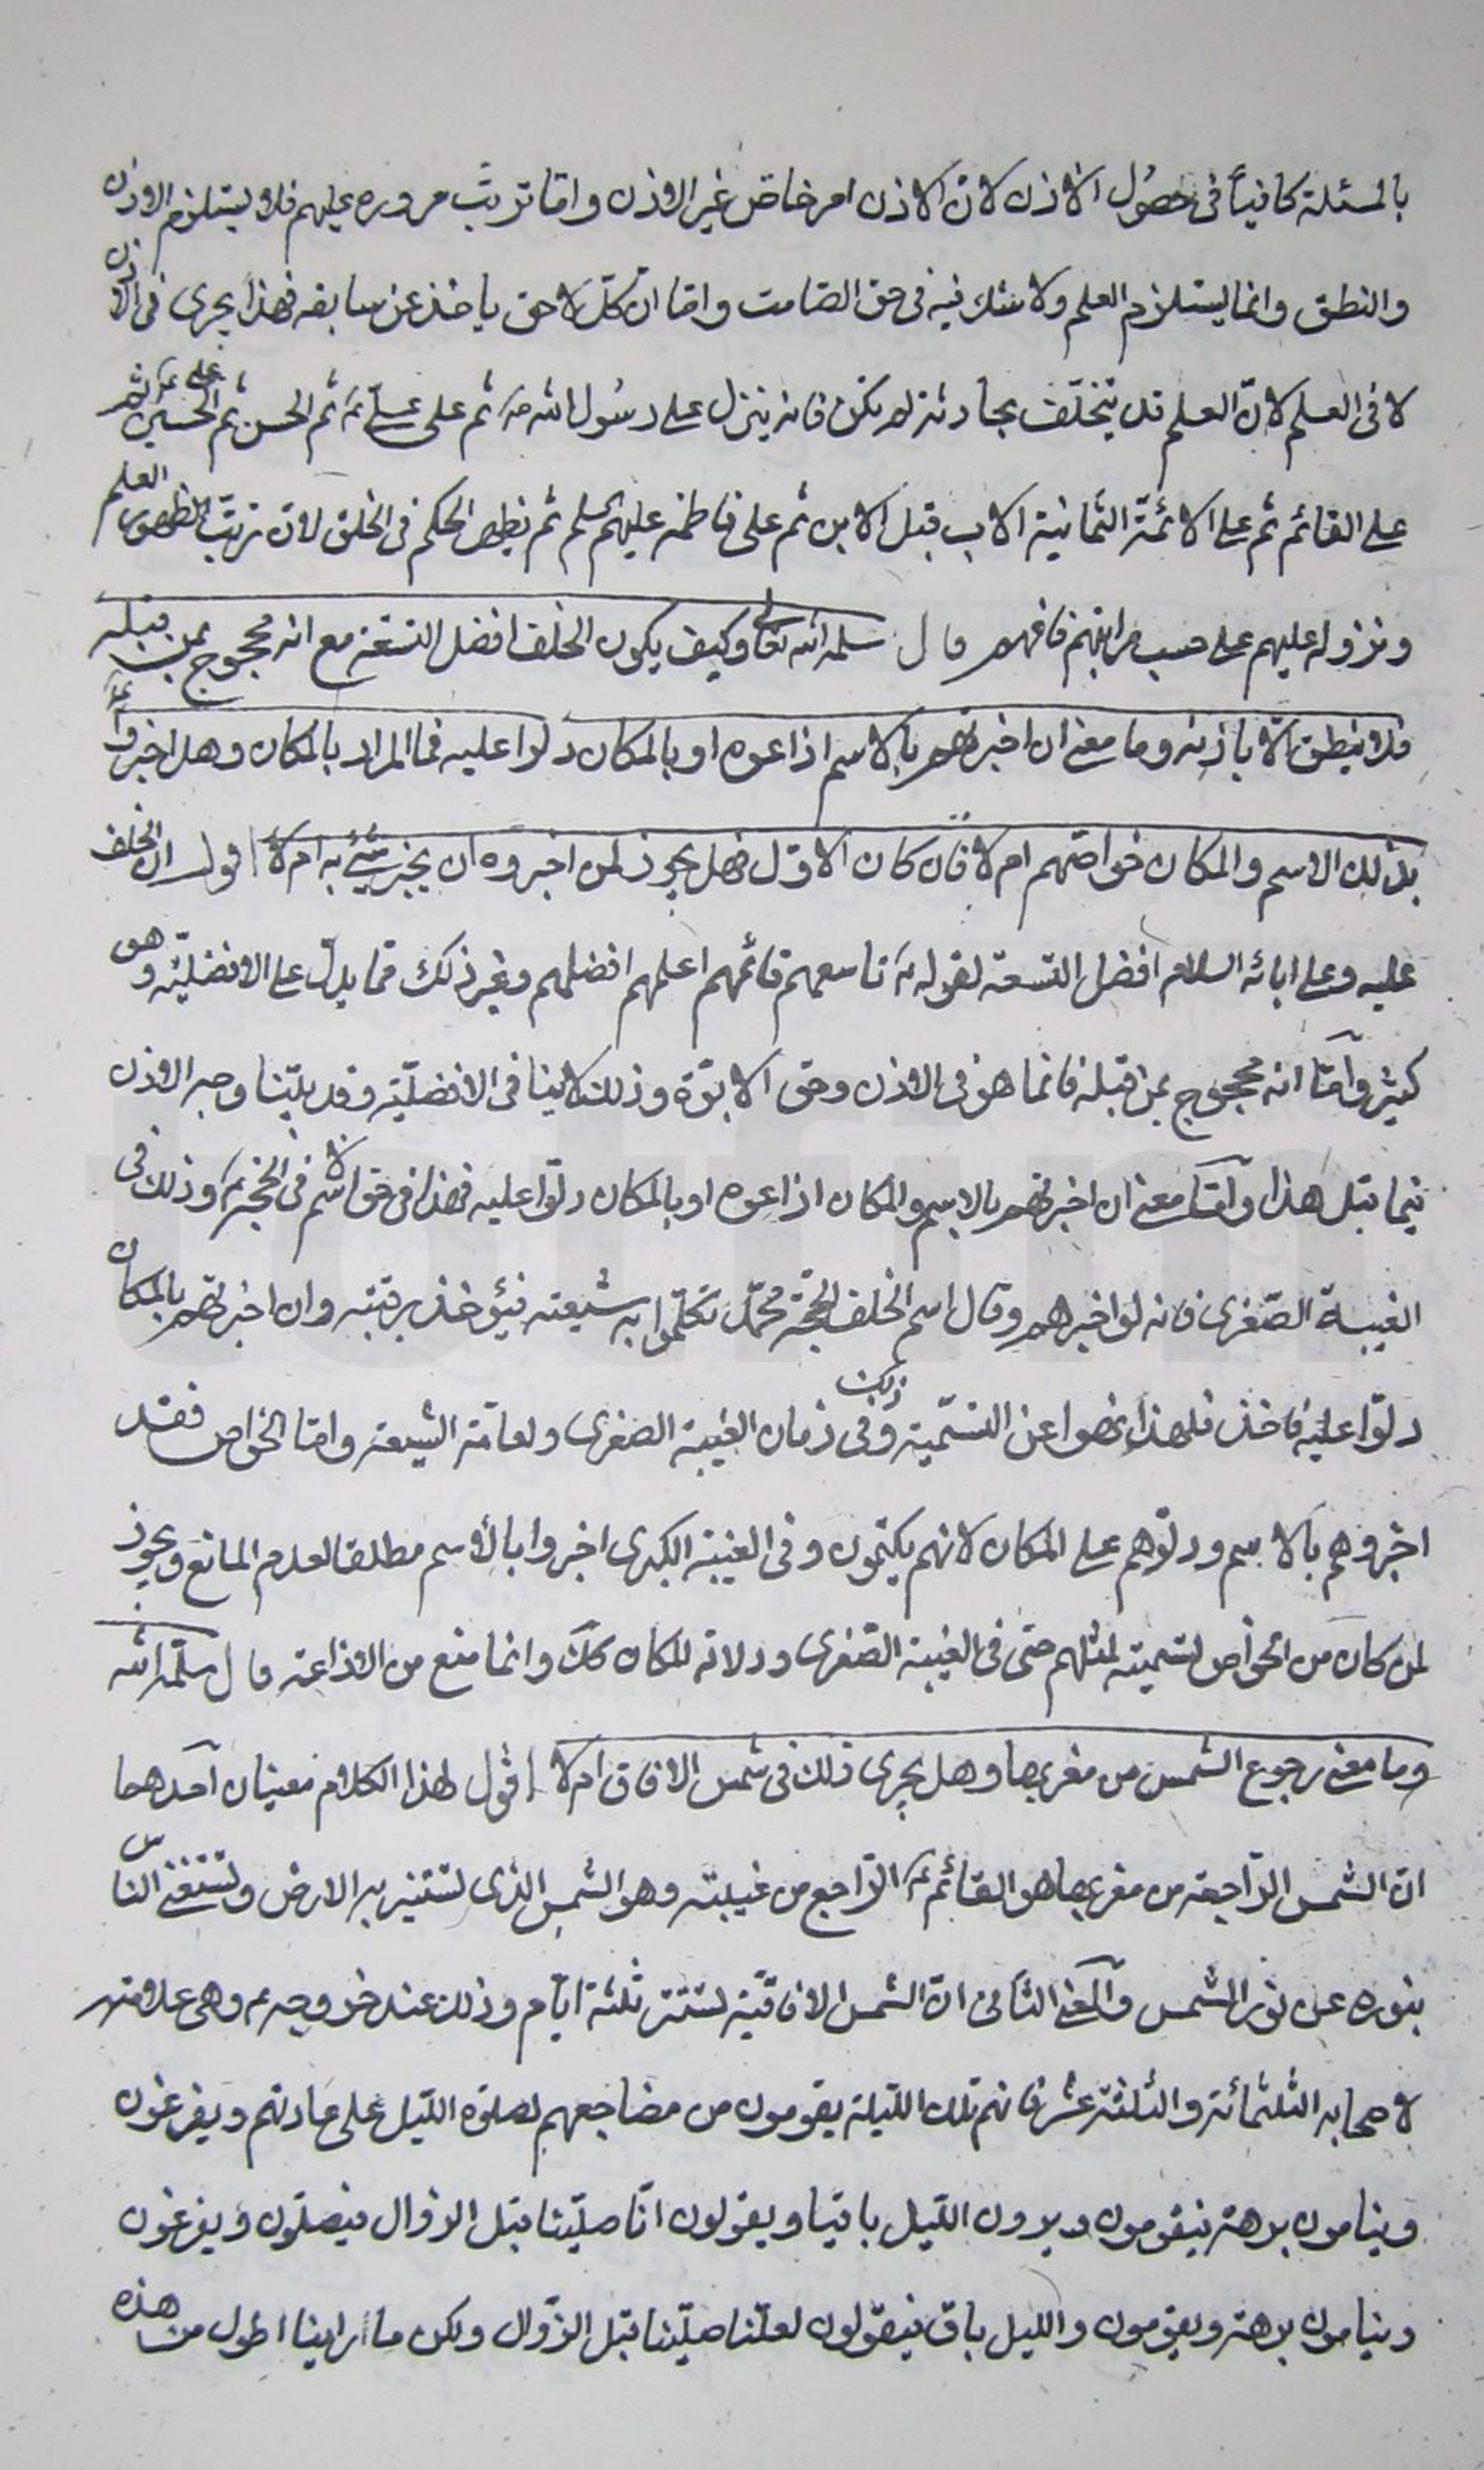 بالمسئلة كافياً فى حصُول الاذن لانّ الاذن امر خاص غير الاذن وامّا ترتّب مروره عليهم فلا يستلزم الاذن
والنطق وانما يستلزم العلم ولا شك فيه فى حق الصّامت وامّا انّ كلّ لاحق ياخذ عن سابقه فهذا يجرى فى الاذن
لا فى العلم لانّ العلم قد يتخلّف بحادثة لم تكن فانه ينزل على رسُول الله صَ ثم على علىّ عَ ثم الحسن ثم الحسين علَى عَ ثم
على القائم ثم على الائمّة الثمانية الاب قبل الابن ثم على فاطمه عليهم السلم ثم يظهر الحكم فى الخلق لان ترتّب الظهور العلم
ونزوله عليهم على حسب مراتبهم فافهم قال سلمه الله تعالى وكيف يكون الخلف افضل التسعة مع انه محجوج بمن قبله
فلا ينطق الّا باذنه وما معنى ان اخبرتهم بالاسم اذاعوه او بالمكان دلوا عليه فما المراد بالمكان وهل اخبروا عَ
بذلك الاسم والمكان خواصّهم ام لا فان كان الاوّل فهل يجوز لمن اخبروه ان يخبر بشئ به ام لا اقول ان الخلف
عليه وعلى ابائه السلام افضل التسعة لقوله عَ تاسعهم قائمهم اعلمهم افضلهم وغير ذلك ممّا يدلّ على الافضليّة وهو
كثير وامّا انه محجوج بمن قبله فانما هو فى الاذن وحق الابوّة وذلك لا ينافى الافضليّة وقد بيّنا وجه الاذن
فيما قبل هذا وامّا معنى ان اخبرتهم بالاسم والمكان اذاعوه او بالمكان دلّوا عليه فهذا فى حق الاسم فى الحجّة عَ وذلك فى
الغيبة الصّغرى فانه لو اخبرهم وقال اسم الخلف الحجّة محمّد تكلّموا به شيعته فيؤخذ برقبته وان اخبرتهم بالمكان
دلّوا عليه فاخذ فلهذا نهوا عن التسّمية وذلك فى زمان الغيبة الصغرى ولعامّة الشيعة وامّا الخواص فقد
اخبروهم بالاسم ودلّوهم على المكان لانهم يكتمون وفى الغيبة الكبرى اخبروا بالأسم مطلقا لعدم المانع ويجوز
لمن كان من الخواص لتسميته لمثلهم حتى فى الغيبة الصّغرى ودلالة المكان كلّ وانما منع من الاذاعة قال سلّمه الله
وما معنى رجوع الشمس من مغربها وهل يجرى ذلك فى شمس الافاق ام لا اقول لهذا الكلام معنيان احدهما
انّ الشمس الرّاجعة من مغربها هو القائم عَ الرّاجع من غيبته وهو الشمس الذى تستنير به الارض وتستغنى الناس
بنوره عن نور الشمس والمعنى الثانى انّ الشمس الافاقيّة تستتر ثلثة ايّام وذلك عند خروجه ع وهى علامة
لاصحابه الثلثمائة والثلثة عشر فانهم تلك الليلة يقومون من مضاجعهم لصلوة الليل على عادتهم ويفرغون
وينامون برهة فيقومون ويرون الليل باقيا ويقولون انّا صلّينا قبل الزوال فيصلّون ويفرغون
وينامون برهة ويقومون والليل باق فيقولون لعلّنا صلّينا قبل الزّوال ولكن ما راينا اطول من هذه